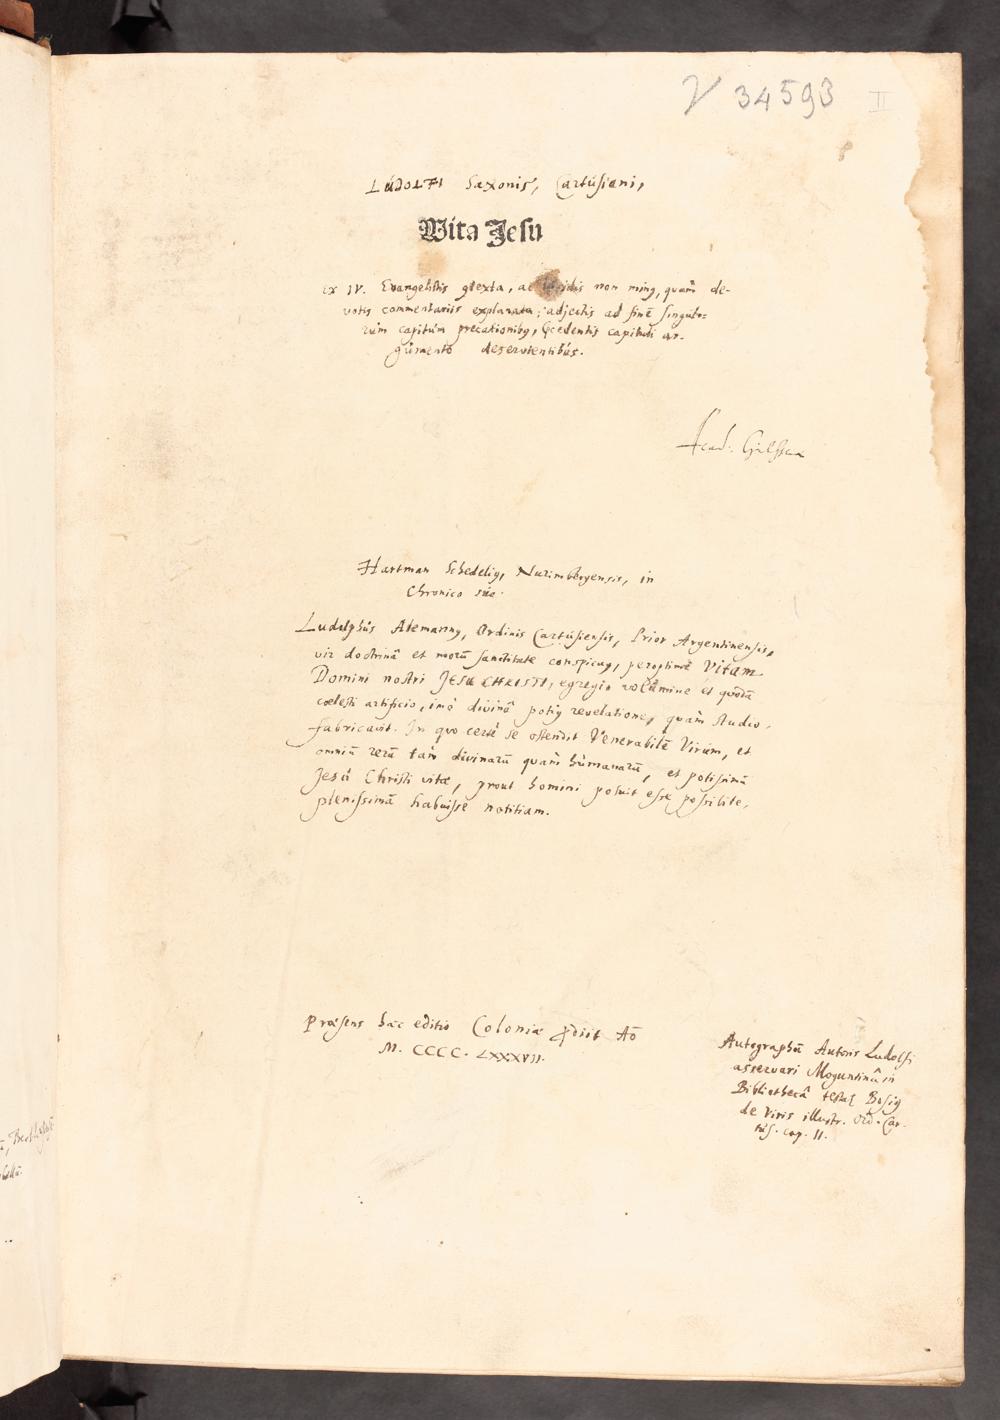 V 34593 II
LúDOLFI Saxonis, Cartúsiani,
Vita Jesu
ex IV. Evangelistis 9texta, ac lucidis non min9, quàm de-
votis commentariis explanata; adjectis ad finē singulo-
rúm capitúm precationib9, p̄cedentis capituli ar-
gúmento deservientibús.
Acad. Giessena
Hartman Schedeli9, Nurimbergensis, in
Chronico súo.
Ludolphús Alemann9, Ordinis Cartúsiensis, Prior Argentinensis,
vir doctrinâ et morū sanctitate conspicu9, peroptimè Vitam
Domini nostri JESU CHRISTI, egregio volúmine et quodā
cœlesti artificio, imò divinâ poti9 revelatione, quàm studio,
fabricavit. In quo certè se ostendit Venerabilē Virúm, et
omniū rerū tam divinarū quàm húmanarū, et potissimū
Jesú Christi vitæ, prout homini potuit esse possibile,
plenissimā habuisse notitiam.
Præsens hæc editio Coloniæ prodiit Aō
M. CCCC. LXXXVII.
Autographū Autoris Ludolfi
asservari Moguntinâ in
Bibliothecâ testat Bosi9
de Viris illustr. Ord. Car-
tús. cap. II.